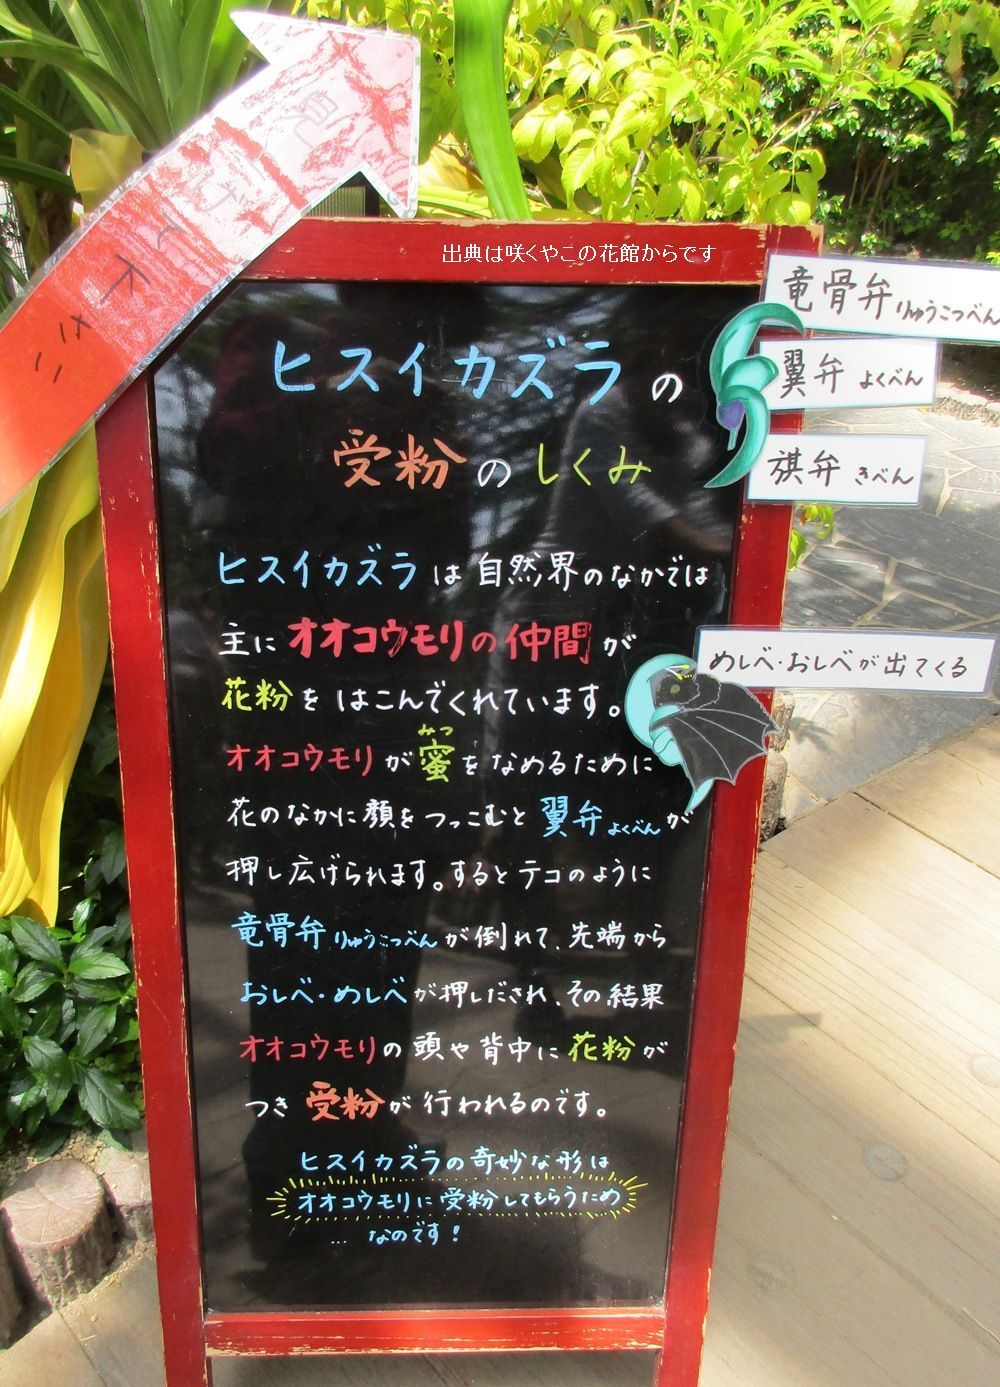 見て下さい
出典は咲くやこの花館からです
竜骨弁 りゅうこつべん
翼弁 よくべん
旗弁 きべん
ヒスイカズラの
受粉のしくみ
ヒスイカズラは自然界のなかでは
主にオオコウモリの仲間が
花粉をはこんでくれています。
めしべ・おしべが出てくる
みつ
オオコウモリが蜜をなめるために
花のなかに顔をつっこむと翼弁よくべんが
押し広げられます。するとテコのように
竜骨弁りゅうこつべんが倒れて、先端から
おしべ・めしべが押しだされ、その結果
オオコウモリの頭や背中に花粉が
つき受粉が行われるのです。
ヒスイカズラの奇妙な形は
オオコウモリに受粉してもらうため
…なのです!